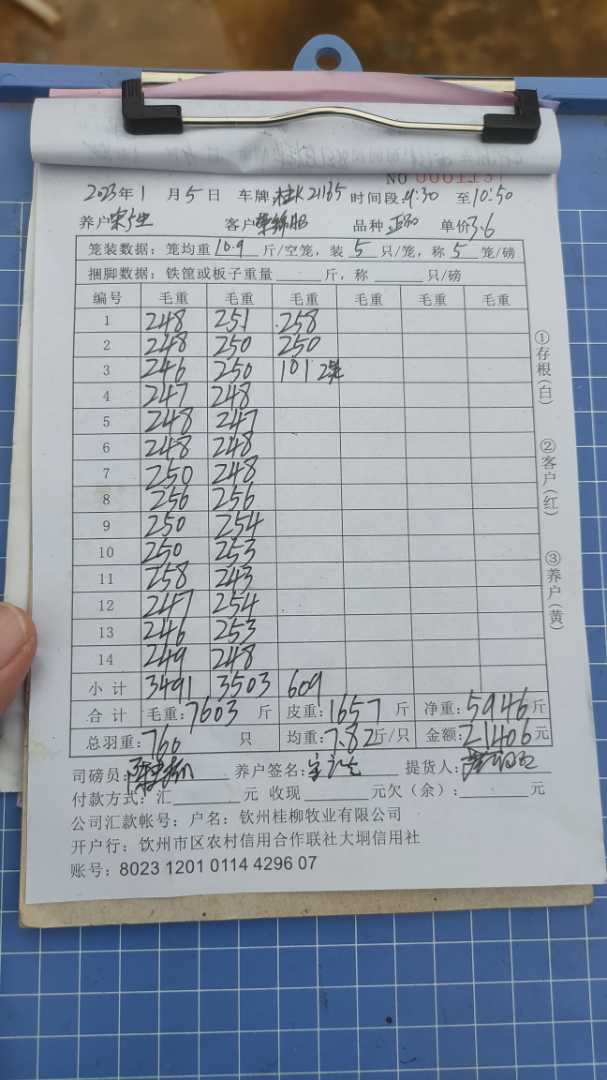 NO 0001137
2023年1月5日 车牌 桂K21165 时间段 9:30 至10:50
养户 客户 品种 单价3.6
笼装数据：笼均重 10.9 斤/空笼，装 5 只/笼，称 5 笼/磅
捆脚数据：铁筐或板子重量 斤，称 只/磅
编号 毛重 毛重 毛重 毛重 毛重 毛重
1 248 251 258
2 248 250 250
3 246 250 101 2笼
4 247 248
5 248 247
6 248 248
7 250 248
8 256 256
9 250 254
10 250 253
11 258 243
12 247 254
13 246 253
14 249 248
小计 3491 3503 609
合计 毛重：7603 斤 皮重：1657 斤 净重：5946 斤
总羽重：760 只 均重：7.82 斤/只 金额：21406 元
司磅员： 养户签名： 提货人：
付款方式：汇 元 收现 元欠（余）： 元
公司汇款帐号：户名：钦州桂柳牧业有限公司
开户行：钦州市区农村信用合作联社大垌信用社
账号：8023 1201 0114 4296 07
①存根（白）
②客户（红）
③养户（黄）